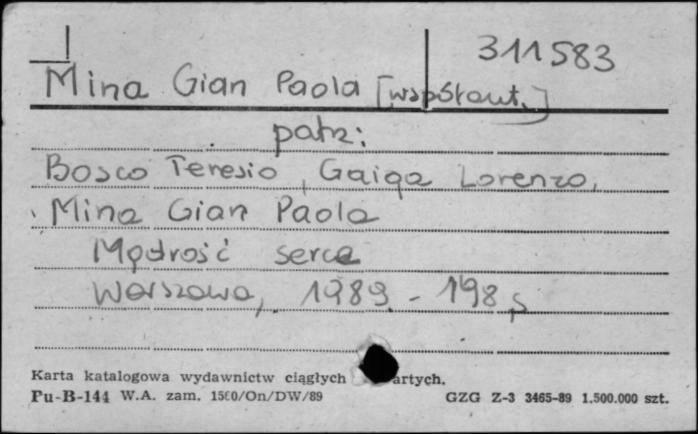 311583
Mina Gian Paola [współaut.]
patrz:
Bosco Teresio, Gaiga Lorenzo,
Mina Gian Paola
Mądrość serca
Warszawa, 1989. - 198 s
Karta katalogowa wydawnictw ciągłych artych.
Pu-B-144 W.A. zam. 1500/On/DW/89 GZG Z-3 3465-89 1.500.000 szt.